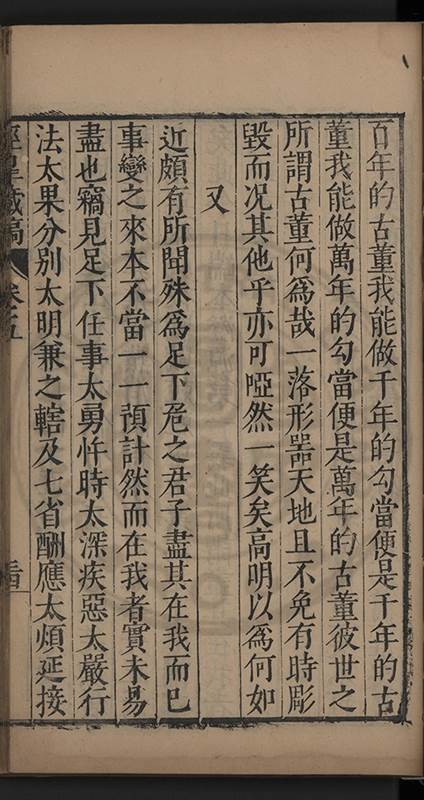 百年的古董我能做千年的勾當便是千年的古
董我能做萬年的勾當便是萬年的古董彼世之
所謂古董何爲哉一落形器天地且不免有時彫
毀而况其他乎亦可啞然一笑矣高明以爲何如
又
近頗有所聞殊爲足下危之君子盡其在我而已
事變之來本不當一一預計然而在我者實未易
盡也竊見足下任事太勇忤時太深疾惡太嚴行
法太果分別太明兼之轄及七省酬應太煩延接
涇臯藏稿 卷之五